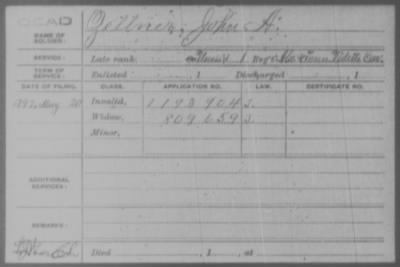 OCAD
NAME OF SOLDIER: Zellner, John A.
SERVICE: Late rank, 1 Reg't
TERM OF SERVICE: Enlisted , 1 Discharged , 1
DATE OF FILING. CLASS. APPLICATION NO. LAW. CERTIFICATE NO.
1892, May 20 Invalid, 1193904 S.
Widow, 809659 S.
Minor,
ADDITIONAL SERVICES:
REMARKS:
Died , 1 , at